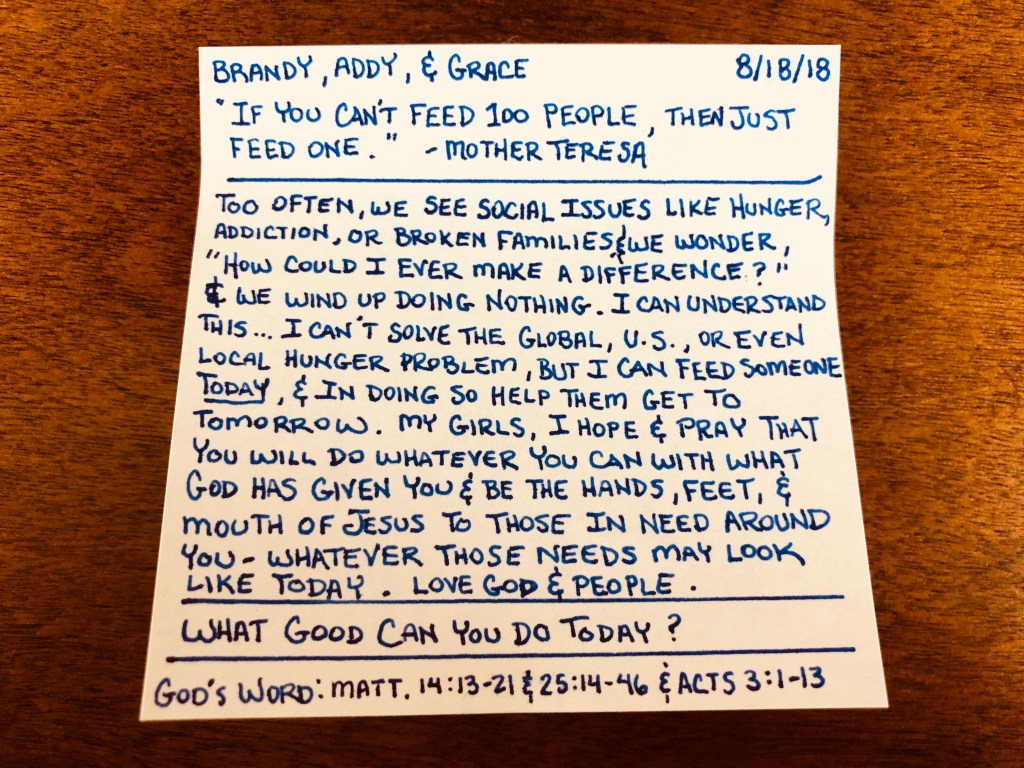 BRANDY, ADDY, & GRACE 8/18/18
"IF YOU CAN'T FEED 100 PEOPLE, THEN JUST
FEED ONE." - MOTHER TERESA
TOO OFTEN, WE SEE SOCIAL ISSUES LIKE HUNGER,
ADDICTION, OR BROKEN FAMILIES & WE WONDER,
"HOW COULD I EVER MAKE A DIFFERENCE?"
& WE WIND UP DOING NOTHING. I CAN UNDERSTAND
THIS... I CAN'T SOLVE THE GLOBAL, U.S., OR EVEN
LOCAL HUNGER PROBLEM, BUT I CAN FEED SOMEONE
TODAY, & IN DOING SO HELP THEM GET TO
TOMORROW. MY GIRLS, I HOPE & PRAY THAT
YOU WILL DO WHATEVER YOU CAN WITH WHAT
GOD HAS GIVEN YOU & BE THE HANDS, FEET, &
MOUTH OF JESUS TO THOSE IN NEED AROUND
YOU - WHATEVER THOSE NEEDS MAY LOOK
LIKE TODAY. LOVE GOD & PEOPLE.
WHAT GOOD CAN YOU DO TODAY?
GOD'S WORD: MATT. 14:13-21 & 25:14-46 & ACTS 3:1-13